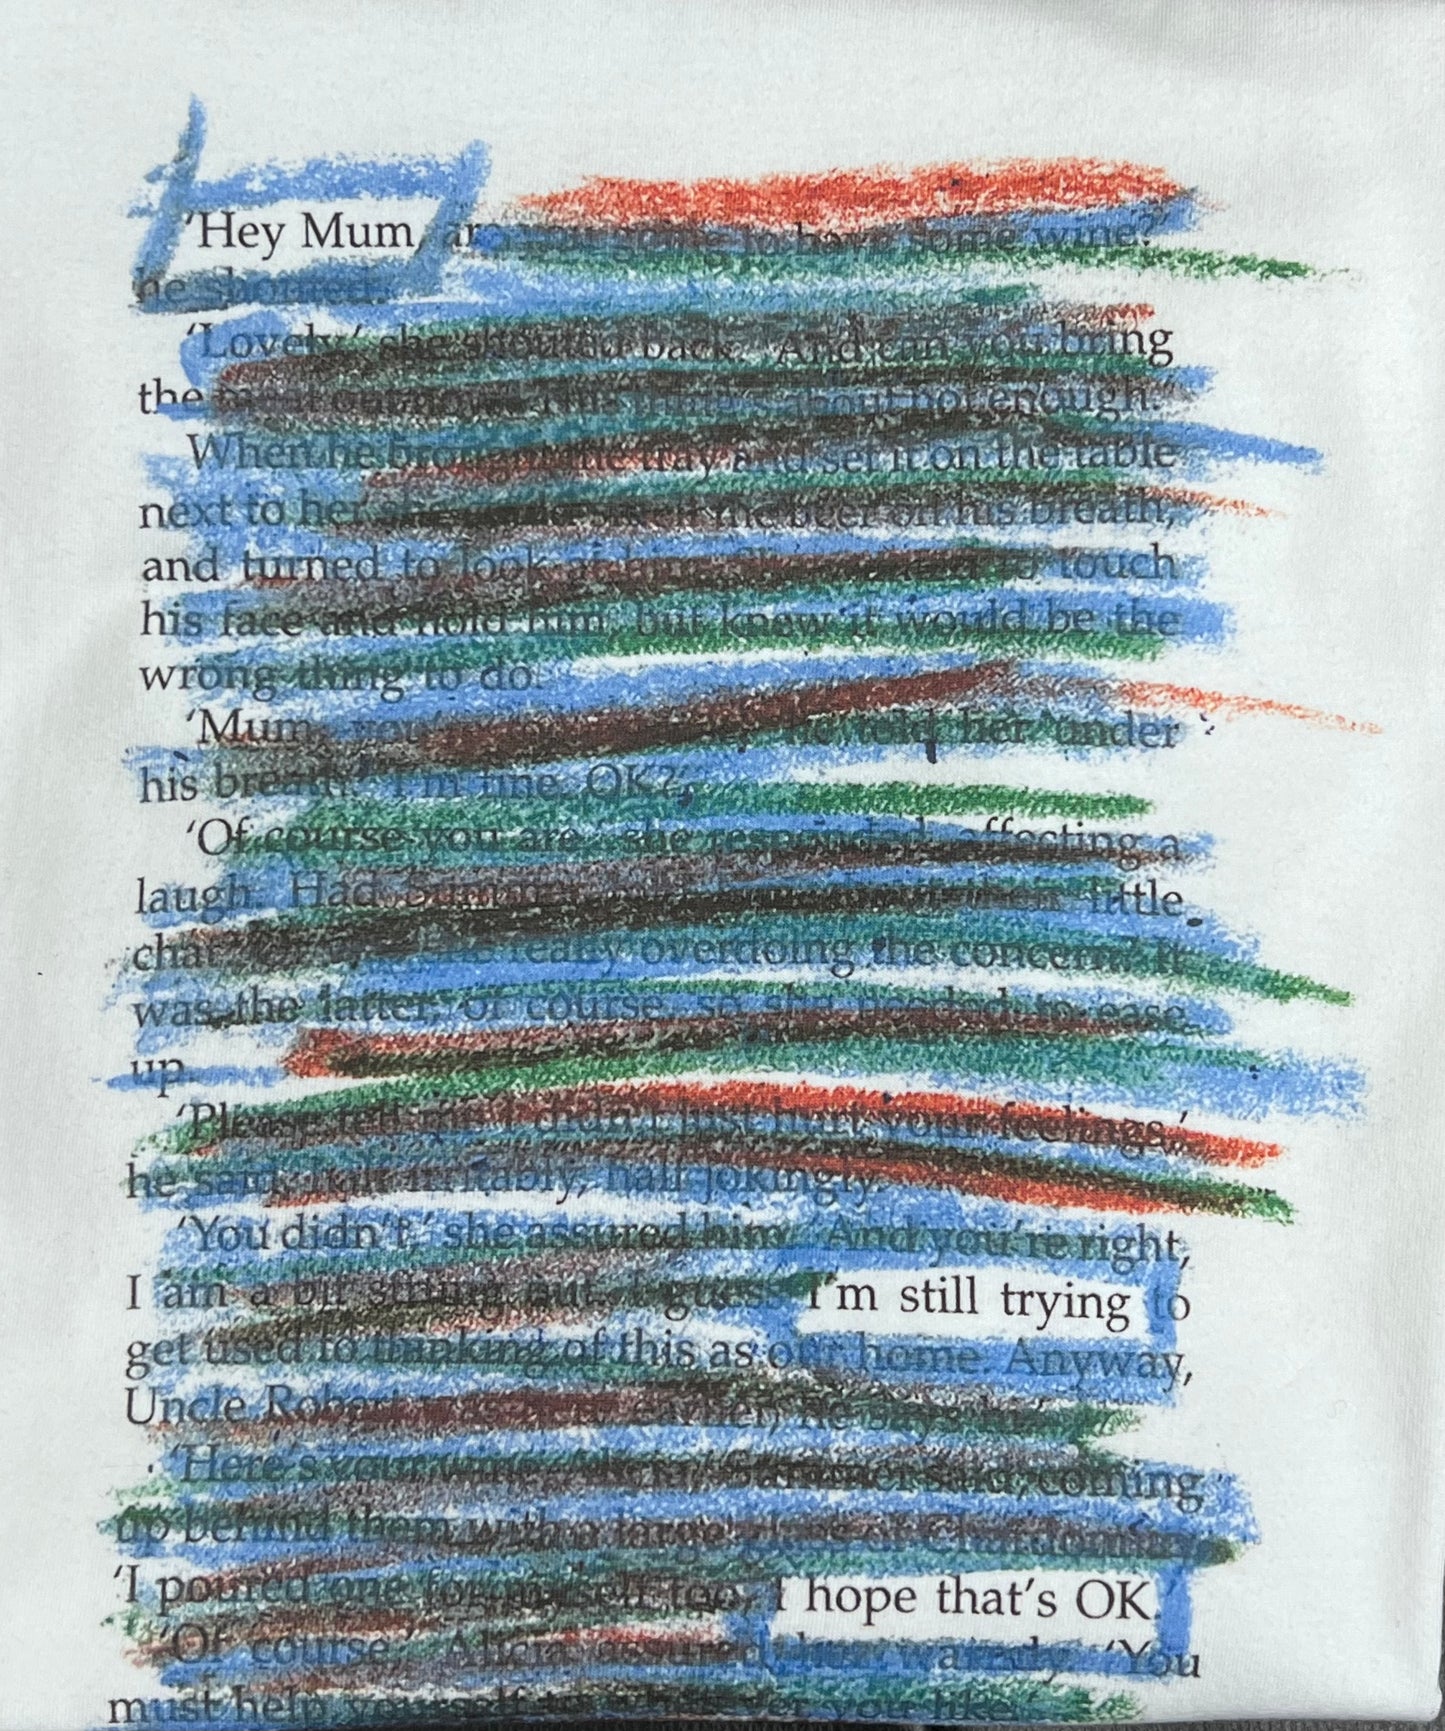 'Hey Mum, are going to have some wine?'
he shouted.
'Lovely,' she shouted back. 'And can you bring
the not enough.'
When he brought the tray and set it on the table
next to her she the beer on his breath,
and turned to look at him. to touch
his face and hold him, but knew it would be the
wrong thing to do.
'Mum, you he told her under
his breath. 'I'm fine. OK?'
'Of course you are,' she responded, affecting a
laugh. Had Summer little
chat? really overdoing the concern? It
was the latter, of course, so she needed to ease
up.
'Please tell me I didn't just hurt your feelings,'
he said, half irritably, half jokingly.
'You didn't,' she assured him. 'And you're right,
I am a bit strung out. I guess I'm still trying to
get used to thinking of this as our home. Anyway,
Uncle Robert was here earlier, he says hi.'
'Here's your wine, Alicia,' Summer said, coming
up behind them with a large glass of Chardonnay.
'I poured one for myself too, I hope that's OK.
'Of course,' Alicia assured her warmly. 'You
must help yourself to whatever you like.'